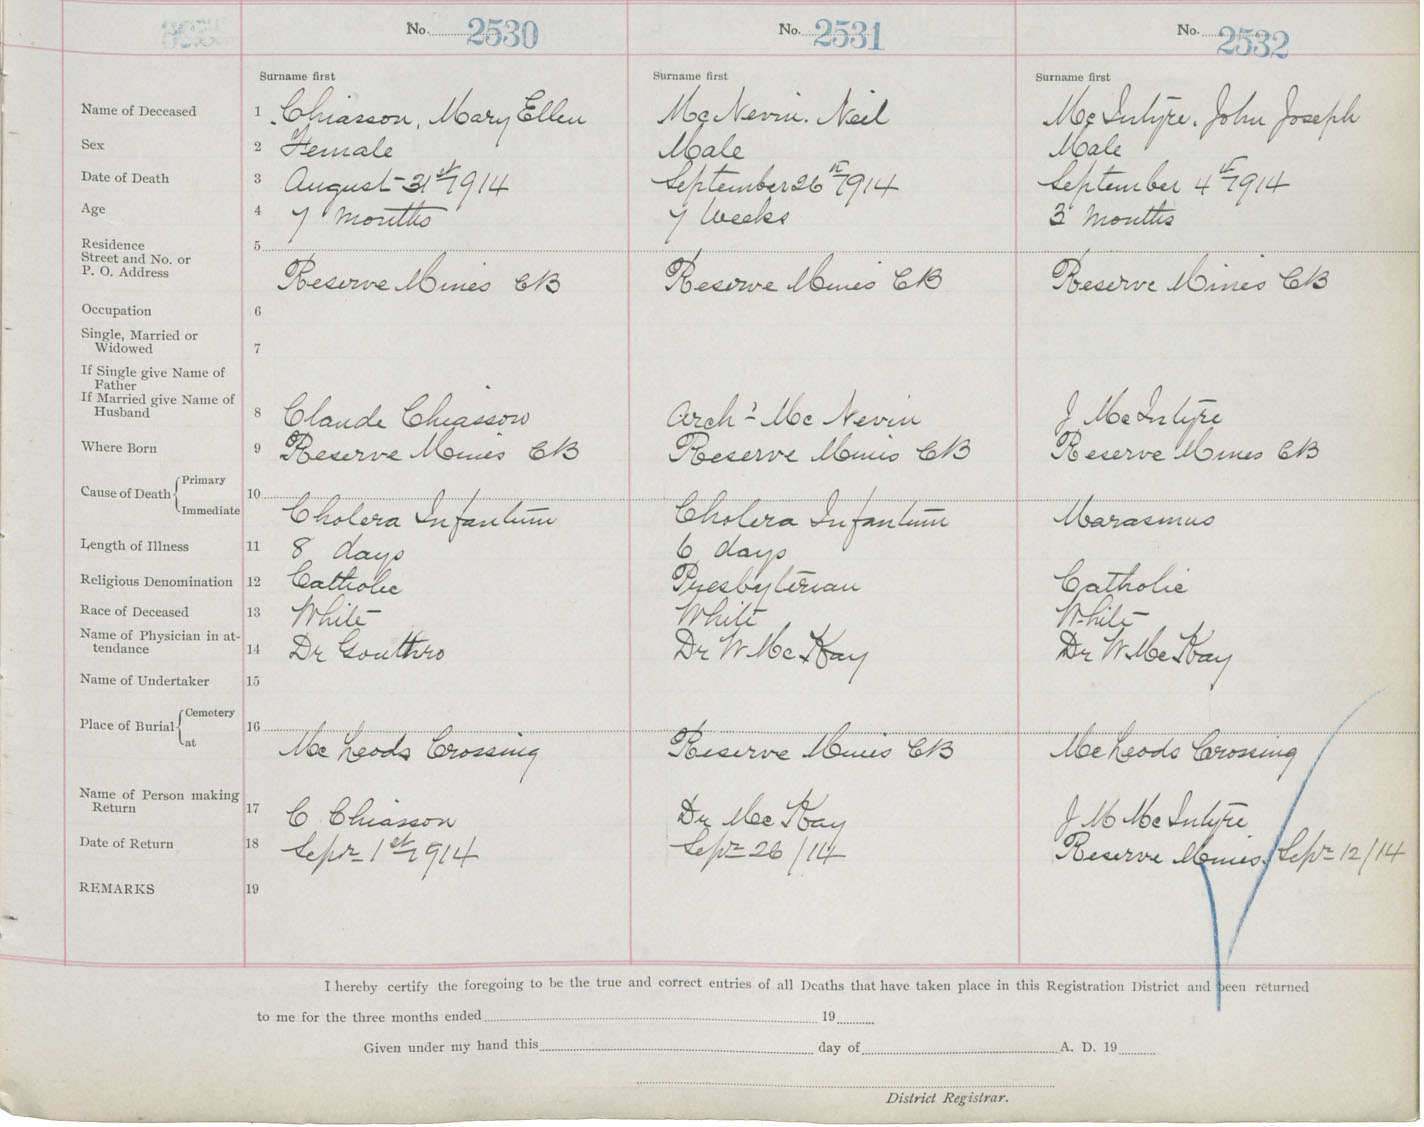 No. 2530 No. 2531 No. 2532
Surname first Surname first Surname first
Name of Deceased 1 Chiasson, Mary Ellen McNevin. Neil McIntyre. John Joseph
Sex 2 Female Male Male
Date of Death 3 August 31st 1914 September 26th 1914 September 4th 1914
Age 4 7 months 7 Weeks 3 months
Residence 5
Street and No. or
P. O. Address Reserve Mines CB Reserve Mines CB Reserve Mines CB
Occupation 6
Single, Married or
Widowed 7
If Single give Name of
Father
If Married give Name of
Husband 8 Claude Chiasson Archd McNevin J McIntyre
Where Born 9 Reserve Mines CB Reserve Mines CB Reserve Mines CB
Primary
Cause of Death 10
Immediate Cholera Infantum Cholera Infantum Marasmus
Length of Illness 11 8 days 6 days
Religious Denomination 12 Catholic Presbyterian Catholic
Race of Deceased 13 White White White
Name of Physician in at-
tendance 14 Dr Gouthro Dr W McKay Dr W McKay
Name of Undertaker 15
Cemetery
Place of Burial 16
at McLeods Crossing Reserve Mines CB McLeods Crossing
Name of Person making
Return 17 C Chiasson Dr McKay J M McIntyre
Date of Return 18 Sepr 1st 1914 Sepr 26/14 Reserve Mines. Sepr 12/14
REMARKS 19
I hereby certify the foregoing to be the true and correct entries of all Deaths that have taken place in this Registration District and been returned
to me for the three months ended 19
Given under my hand this day of A. D. 19
District Registrar.